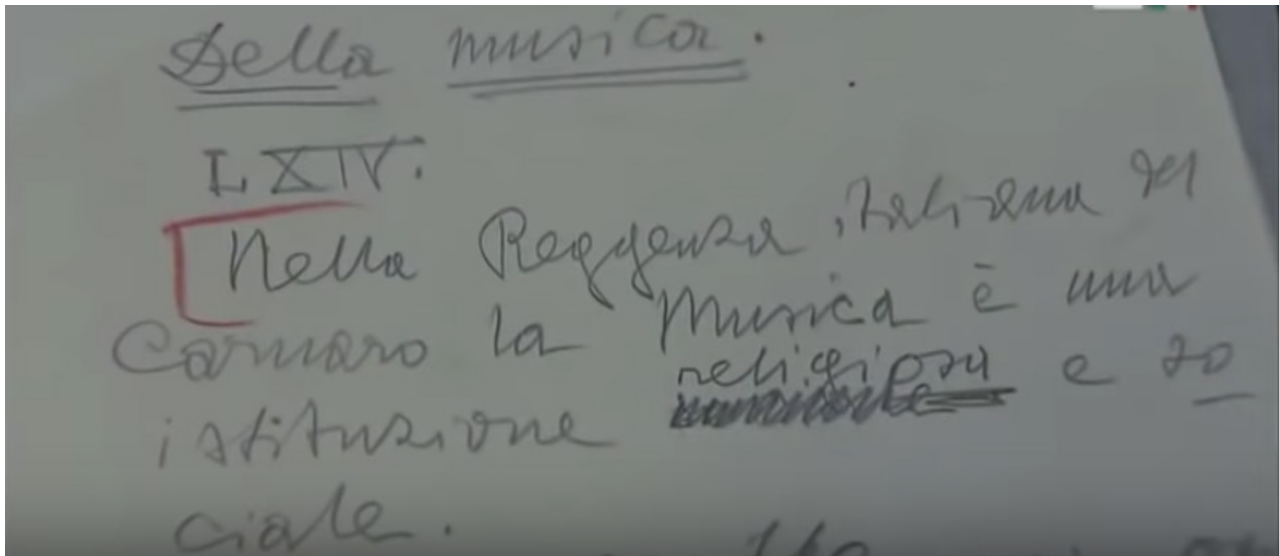 Della musica.
LXIV.
Nella Reggenza italiana del
Carnaro la Musica è una
istituzione religiosa e so
ciale.